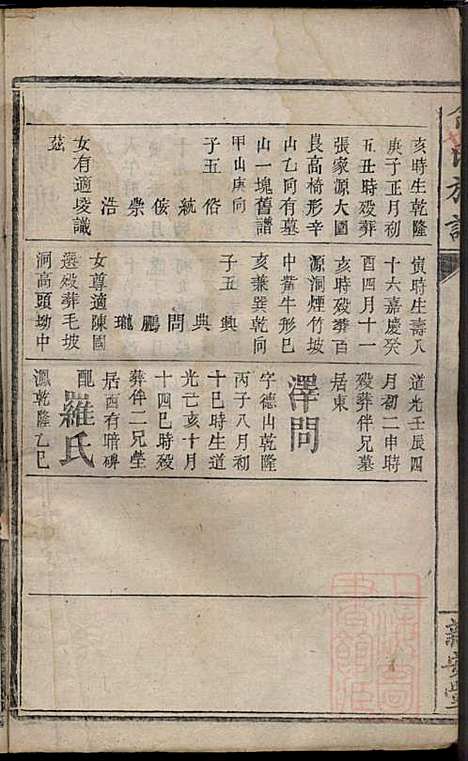 亥時生乾隆
庚子正月初
五丑時歿葬
張家源大圓
艮高椅形辛
山乙向有墓
山一塊舊譜
甲山庚向
子五
俗
統
侫
崇
浩
女有適堎議
茲
寅時生壽八
十六嘉慶癸
酉四月十一
亥時歿葬百
源洞煙竹坡
中黨牛形巳
亥兼巽乾向
子五
興
典
問
鵬
瓏
女尊適陳國
選歿葬毛坡
洞高頭坳中
道光壬辰四
月初二申時
歿葬伴兄墓
居東
澤問
字德山乾隆
丙子八月初
十巳時生道
光己亥十月
十四巳時歿
葬伴二兄塋
居西有暗碑
配羅氏
鳳乾隆乙巳
氏族譜
新安堂